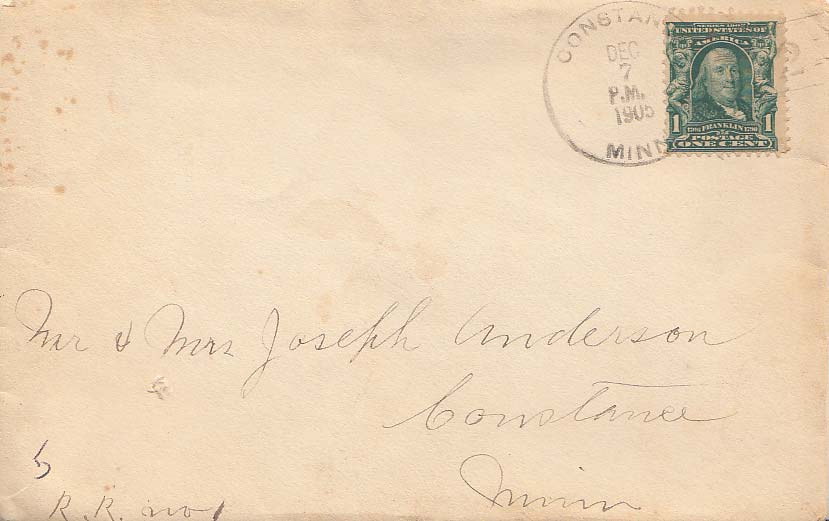 CONSTAN
DEC
7
P.M.
1905
MINN
SERIES 1902
UNITED STATES OF
AMERICA
1706 FRANKLIN 1790
1 POSTAGE 1
ONE CENT
Mr & Mrs Joseph Anderson
Constance
Minn
5
R. R. no 1